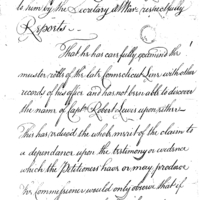 to him by the Secretary at War respectfully
Reports.
That he has carefully examined the
muster rolls of the late Connecticut Line with other
records of his office and has not been able to discover
the name of Captn Robert Lewis upon either
This has reduced the whole merit of the claim to
a dependance upon the testimony or evidence
which the Petitioners have or may produce
Commissioner would only observe that if